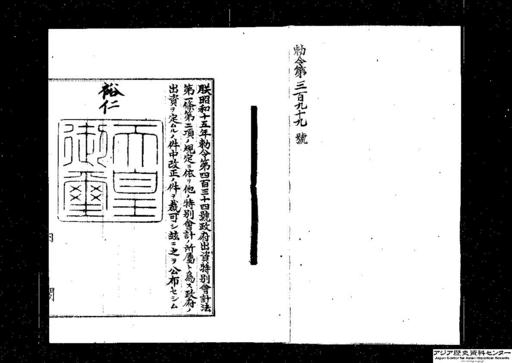 勅令第三百九十九號
朕昭和十五年勅令第四百三十四號政府出資特別會計法
第一條第二項ノ規定ニ依リ他ノ特別會計ノ所屬ト爲ス政府ノ
出資ヲ定ムルノ件中改正ノ件ヲ裁可シ玆ニ之ヲ公布セシム
裕仁
天皇
御璽
アジア歴史資料センター
Japan Center for Asian Historical Records